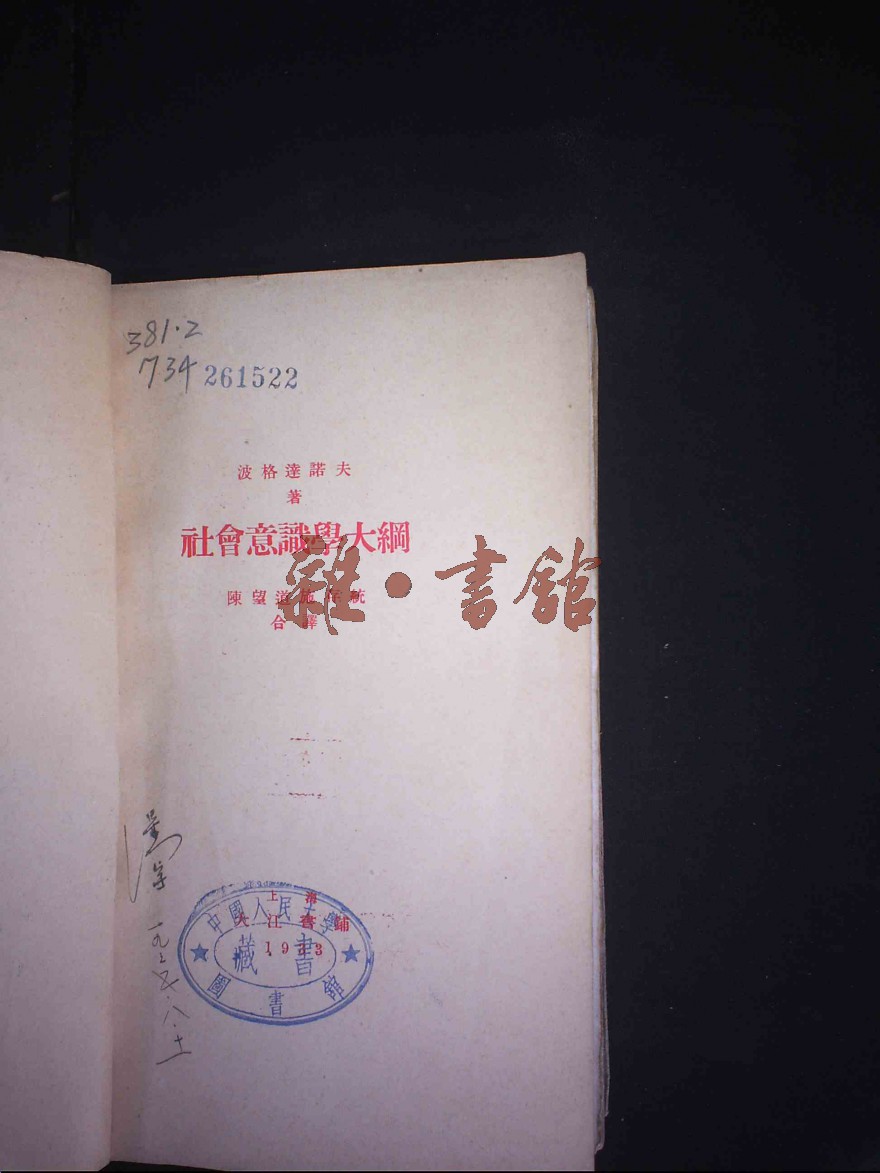 381.2
734 261522
波格達諾夫
著
社會意識學大綱
陳望道施存統
合譯
雜·書舘
上海
大江書鋪
1933
中國人民大學
藏書
圖書館